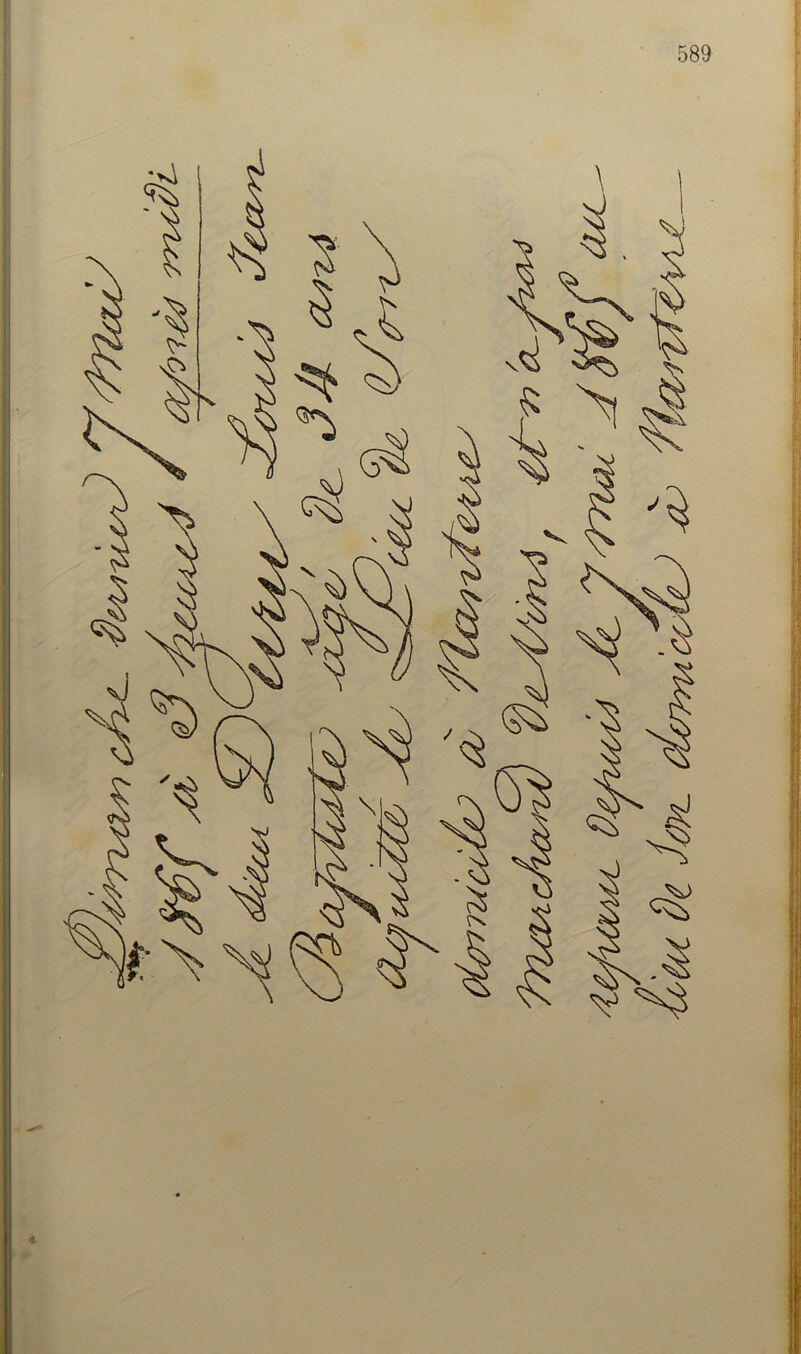 589
Dimanche dernier 7 mai
1865 à 3 heures après midi
le sieur Duru Louis Jean
Baptiste âgé de 34 ans
aquitté le Lieu de Son
domicile à Nanterre
marchand de Vins, et n'a pas
reparu depuis le 7 mai 1865 au
lieu de Son domicile à Nanterre